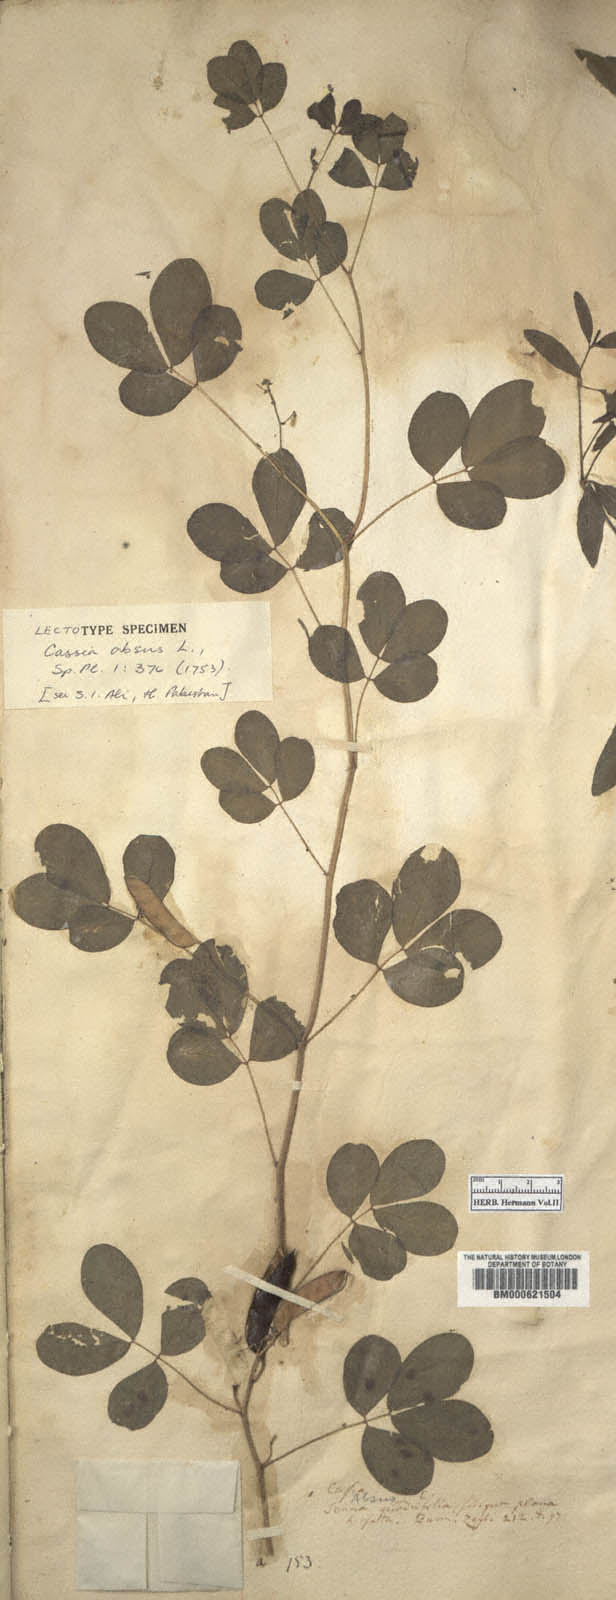 LECTOTYPE SPECIMEN
Cassia absus L.,
Sp. Pl. 1: 376 (1753).
[see S. I. Ali, Fl. Pakistan]
mm 1 2 3
HERB. Hermann Vol.II
THE NATURAL HISTORY MUSEUM, LONDON
DEPARTMENT OF BOTANY
BM000621504
Absus
Senna quadrifolia siliqua plana
Burm. Zeyl. 212. t. 97
a 153.